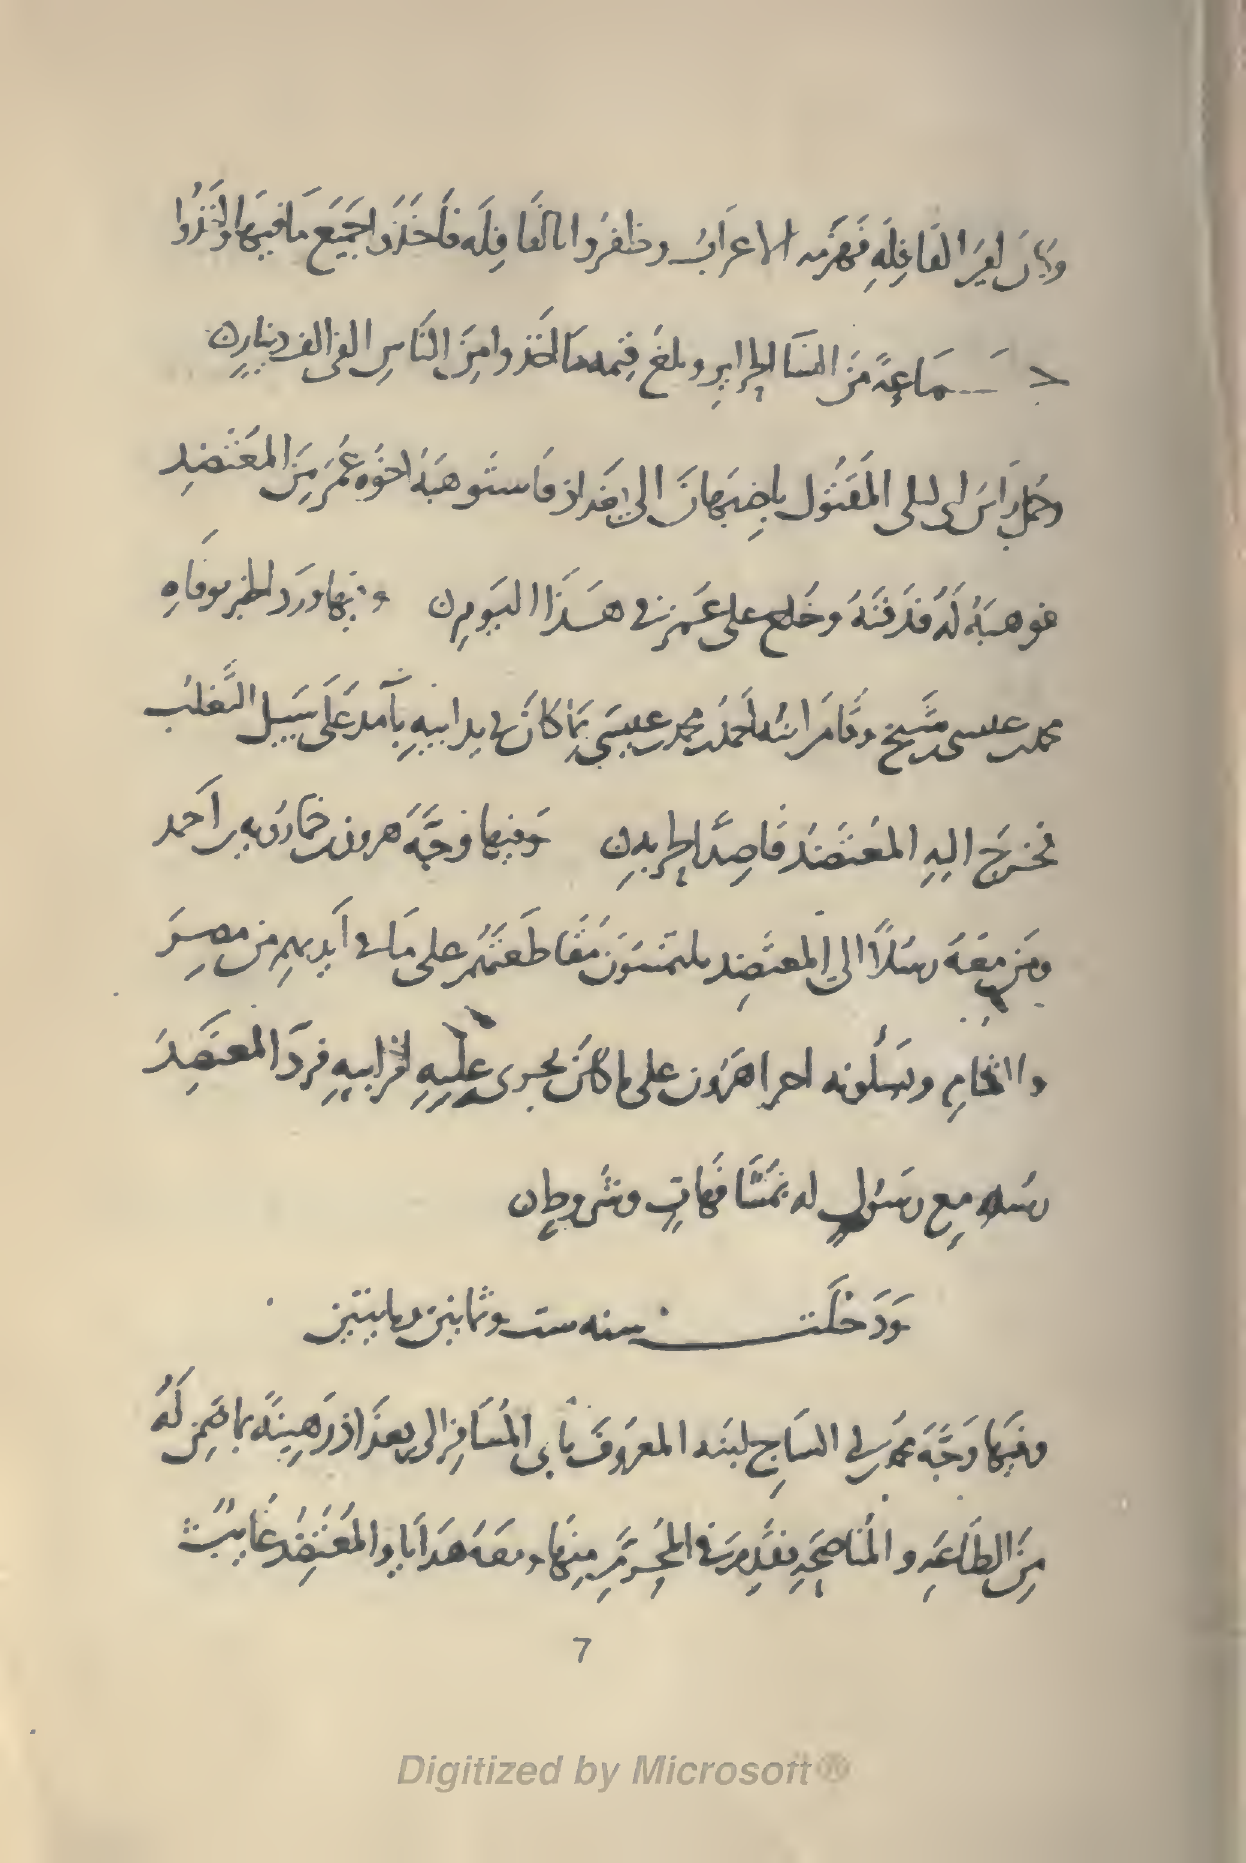 وكان امير القافله فهزمه الاعراب وظفروا بالقافله فاخذوا جميع ما فيها واخذوا
جماعةً من النسا الحراير وبلغ قيمه ما اخذوا من الناس الفى الف دينار ن
وحمل راس ابى ليلى المقتول باصبهان الى بغداذ فاستوهبه اخوه عمر من المعتضد
فوهبه له فدفنه وخلع على عمر في هذا اليوم ن وفيها ورد الخبر بوفاه
محمد بن عيسى بن شيخ وقام ابنه احمد بن محمد بن عيسى بما كان في يد ابيه بآمد على سبيل التغلب
فخرج اليه المعتضد قاصدًا لحربه ن وفيها وجّه هرون بن خمارويه بن احمد
ومن معه رسلًا الى المعتضد يلتمسون مقاطعتهم على ما في ايديهم من مصر
والشام ويسلونه اجرا هرون على ما كان يجرى عليه امر ابيه فردّ المعتضد
رسله مع رسول له بمشافهات وشروط ن
ودخلت سنه ست وثمانين ومايتين
وفيها وجّه محمد بن ابى الساج ابنه المعروف بابى المسافر الى بغداذ رهينةً بما ضمن له
من الطاعه والمناصحه فقدم في المحرم منها ومعه هدايا والمعتضد غايب
7
Digitized by Microsoft®